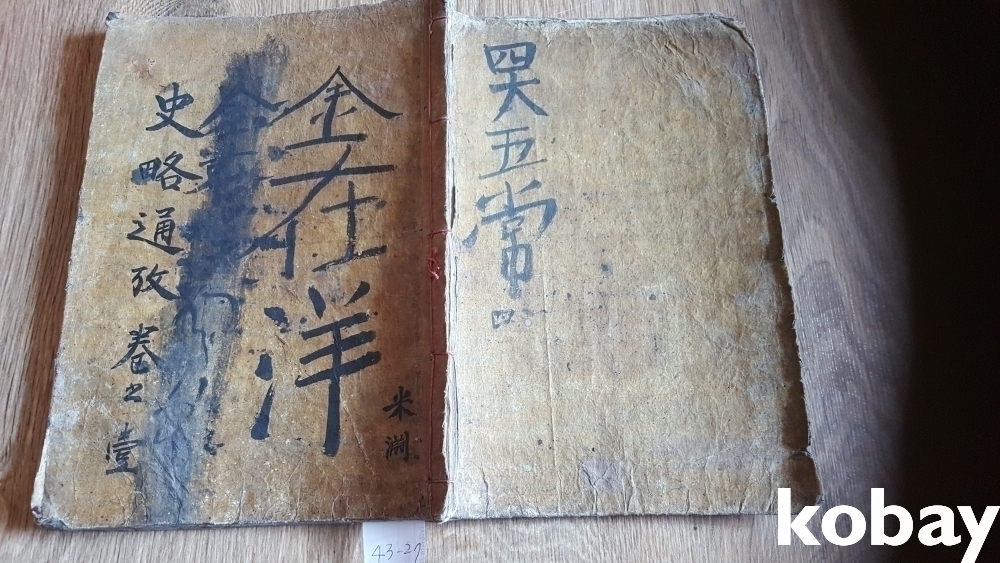 史略通攷 卷之壹
金在洋
米淵
四大五常
四
43-27
kobay